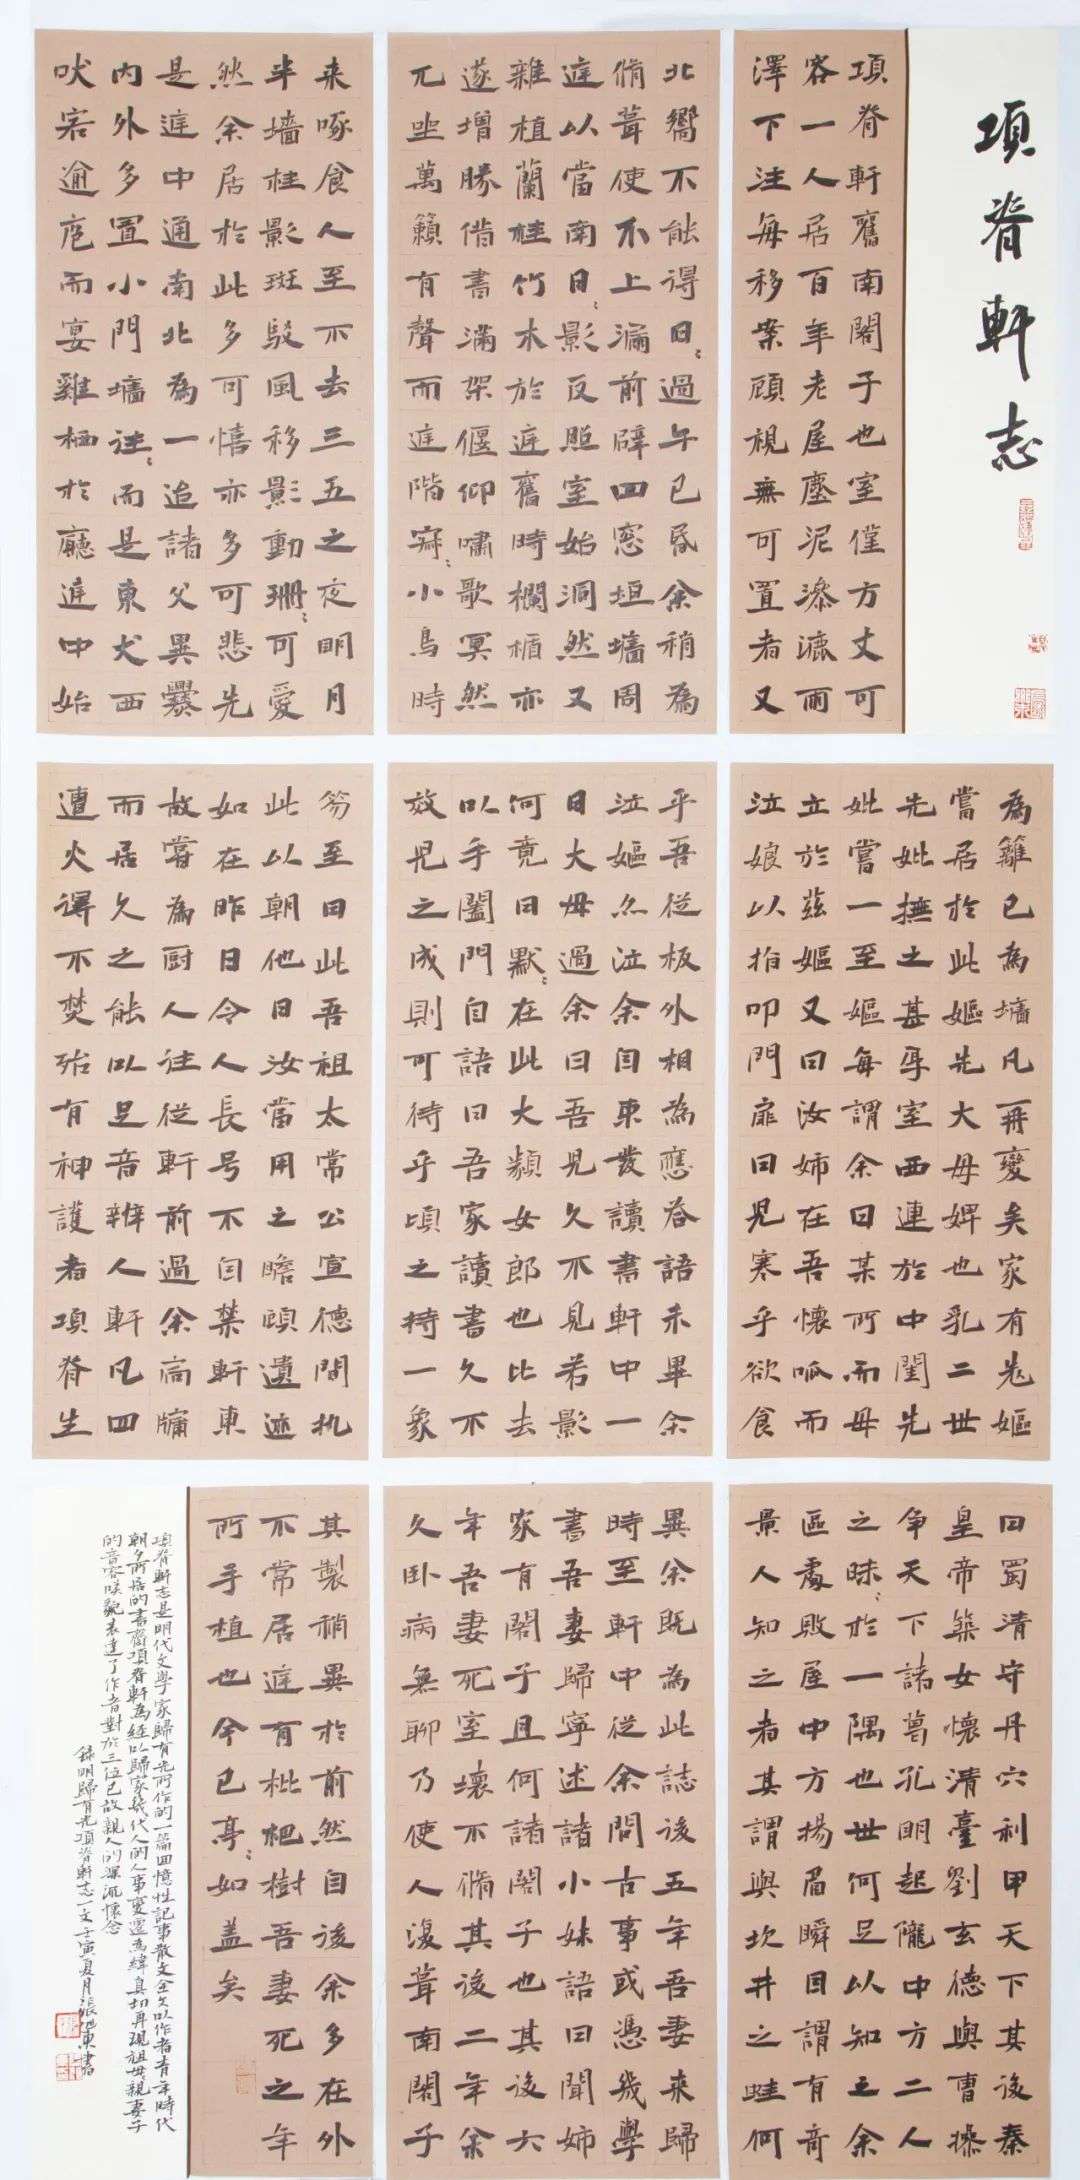 項脊軒志
項脊軒舊南閣子也室僅方丈可
容一人居百年老屋塵泥滲漉雨
澤下注每移案顧視無可置者又
北嚮不能得日〻過午已昏余稍為
脩葺使不上漏前辟四窓垣墻周
庭以當南日〻影反照室始洞然又
雜植蘭桂竹木於庭舊時欄楯亦
遂增勝借書滿架偃仰嘯歌冥然
兀坐萬籟有聲而庭階寂〻小鳥時
来啄食人至不去三五之夜明月
半墻桂影斑駁風移影動珊〻可愛
然余居於此多可憘亦多可悲先
是庭中通南北為一迨諸父異爨
内外多置小門墻往〻而是東犬西
吠客逾庖而宴雞栖於廳庭中始
為籬已為墻凡再變矣家有老嫗
嘗居於此嫗先大母婢也乳二世
先妣撫之甚厚室西連於中閨先
妣嘗一至嫗每謂余曰某所而母
立於茲嫗又曰汝姊在吾懷呱而
泣娘以指叩門扉曰兒寒乎欲食
乎吾從板外相為應答語未畢余
泣嫗亦泣余自束髮讀書軒中一
日大母過余曰吾兒久不見若影
何竟日默〻在此大類女郎也比去
以手闔門自語曰吾家讀書久不
效兒之成則可待乎頃之持一象
笏至曰此吾祖太常公宣德間執
此以朝他日汝當用之瞻顧遺迹
如在昨日令人長号不自禁軒東
故嘗為厨人往從軒前過余扃牖
而居久之能以足音辨人軒凡四
遭火得不焚殆有神護者項脊生
曰蜀清守丹穴利甲天下其後秦
皇帝築女懷清臺劉玄德與曹操
爭天下諸葛孔明起隴中方二人
之昧〻於一隅也世何足以知之余
區處敗屋中方揚眉瞬目謂有奇
景人知之者其謂與坎井之蛙何
異余既為此誌後五年吾妻来歸
時至軒中從余問古事或憑幾學
書吾妻歸寧述諸小妹語曰聞姊
家有閣子且何諸閣子也其後六
年吾妻死室壞不脩其後二年余
久卧病無聊乃使人復葺南閣子
其製稍異於前然自後余多在外
不常居庭有枇杷樹吾妻死之年
所手植也今已亭〻如盖矣
項脊軒志是明代文學家歸有光所作的一篇回憶性記事散文全文以作者青年時代
朝夕所居的書齋項脊軒為經以歸家幾代人的人事變遷為緯真切再現祖母親妻子
的音容笑貌表達了作者對於三位已故親人的深沉懷念
錄明歸有光項脊軒志一文壬寅夏月張東書